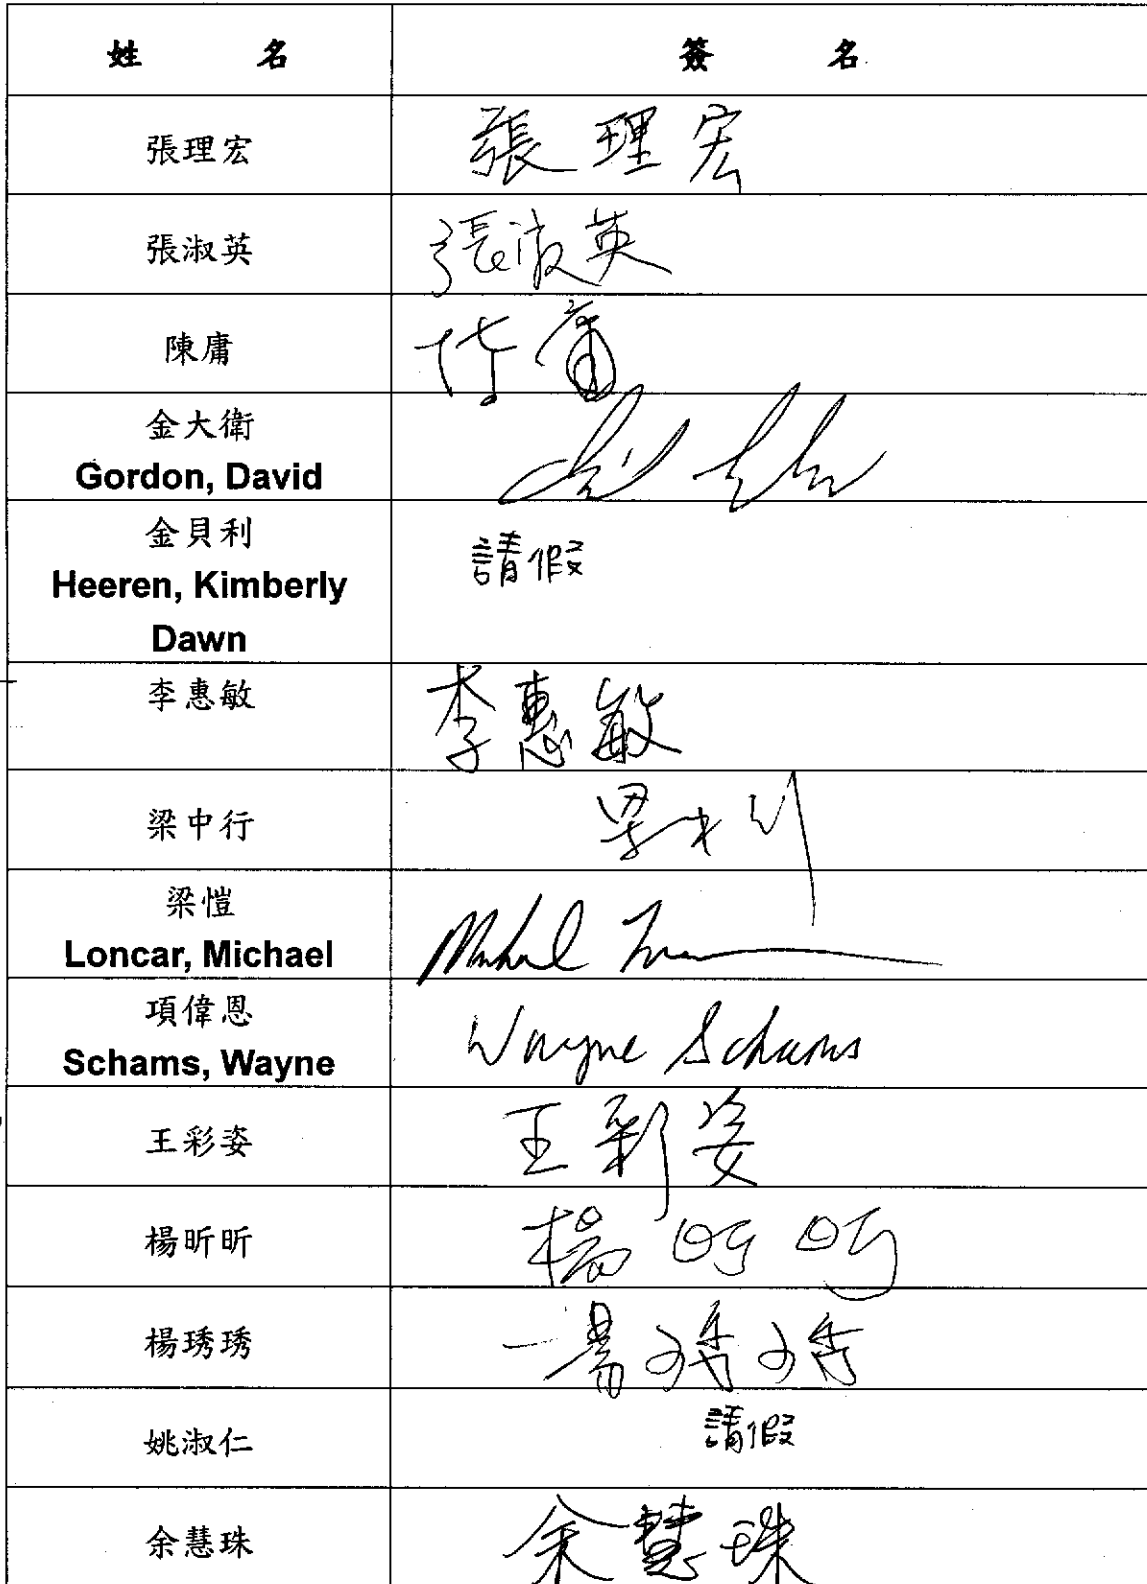 姓 名 簽 名
張理宏 張理宏
張淑英 張淑英
陳庸 陳庸
金大衛
Gordon, David
金貝利 請假
Heeren, Kimberly
Dawn
李惠敏 李惠敏
梁中行 梁中行
梁愷
Loncar, Michael Michael
項偉恩
Schams, Wayne Wayne Schams
王彩姿 王彩姿
楊昕昕 楊昕昕
楊琇琇 楊琇琇
姚淑仁 請假
余慧珠 余慧珠